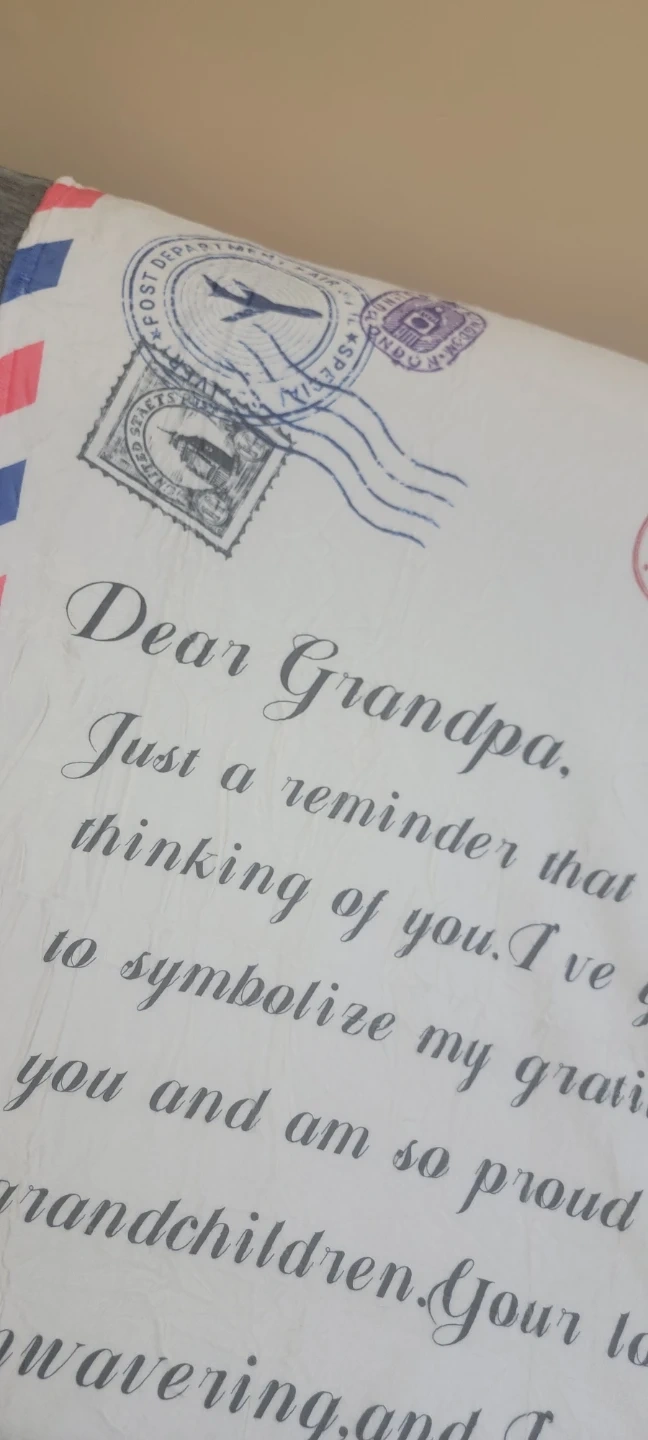 POST DEPARTMENT AIR
SPECIAL
UNITED STAETS
Dear Grandpa,
Just a reminder that
thinking of you.I've
to symbolize my
you and am so proud
grandchildren.Your
and I